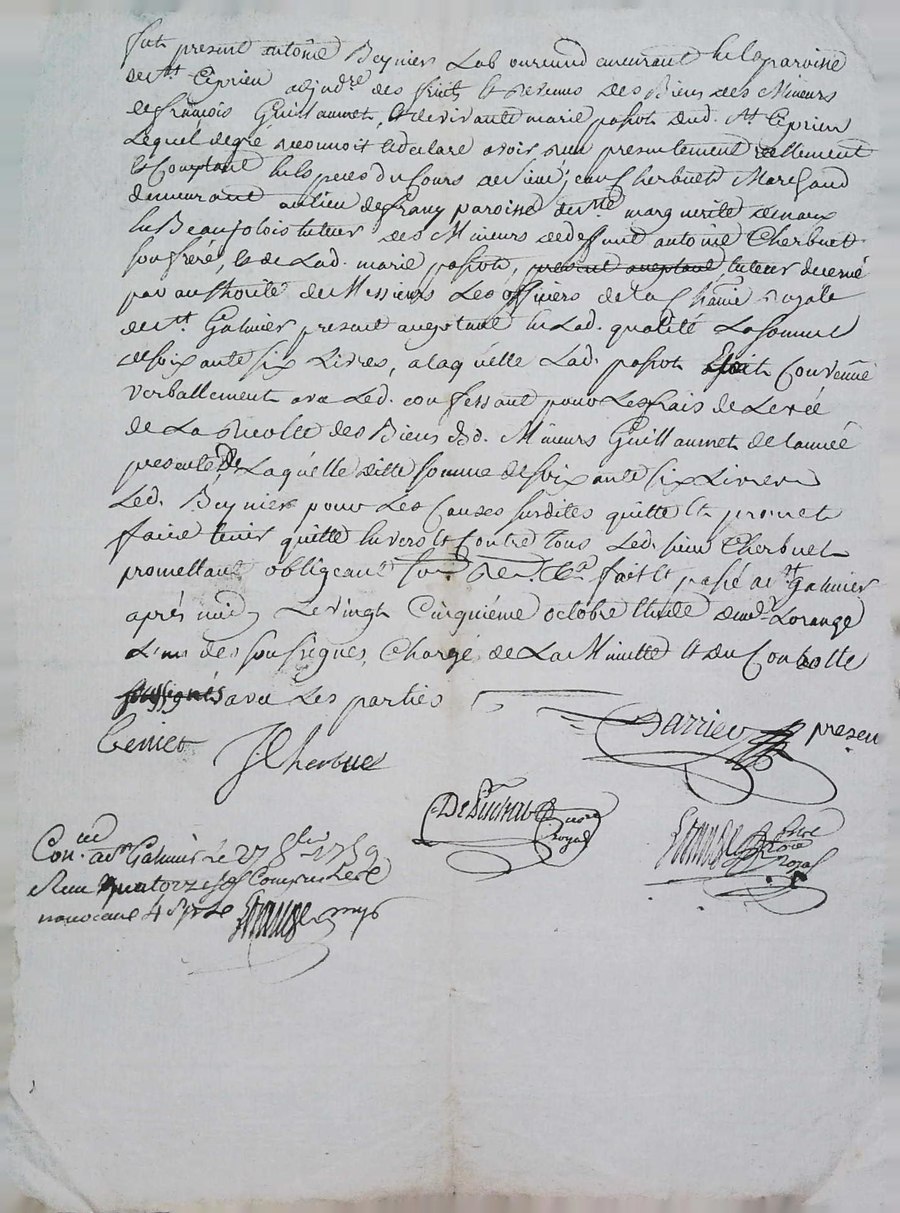 fut present antoine Beynier Laboureur demeurant en la paroisse
de st Ciprien adjudre. des fruits et Revenus des Biens des Mineurs
de françois Guillaumet, et de vivante marie passot dud. st Ciprien
Lequel de gré reconnoit et declare avoir reçu presentement réellement
et Comptant en especes du Cours de sieur jean Cherbuet Marchand
demeurant au lieu de frany paroisse de ste marguerite de naux
en Beaujolois tuteur des Mineurs de deffunt antoine Cherbuet
son frére, et de Lad. marie passot, present acceptant, tuteur decerné
par authorité de Messieurs Les officiers de la Chatnie royale
de st Galmier present acceptant en Lad. qualité La somme
de soixante six Livres, a laquelle Lad. passot étoit Convenüe
verballement avec Led. confessant pour Les frais de Levée
de La recolte des Biens desd. Mineurs Guillaumet de l'année
presente de Laquelle ditte somme de soixante six Livres
Led. Beynier pour Les Causes susdites quitte et promet
faire tenir quitte envers et Contre tous Led. sieur Cherbuet
promettant obligeant soum. Ren. &a. fait et passé a st Galmier
après midy Le vingt Cinquiéme octobre Lorange
L'un des soussignes, Chargé de La Minutte et du Controlle
soussignés avec Les parties
Beniet J Cherbue Barrieu presen
De Luchaut nore royal
Lorange nore royal
Con. a st Galmier Le 27 8bre 1759
Reçu quatorze sols Compris Les
nouveaux 4 s pr Le Lorange